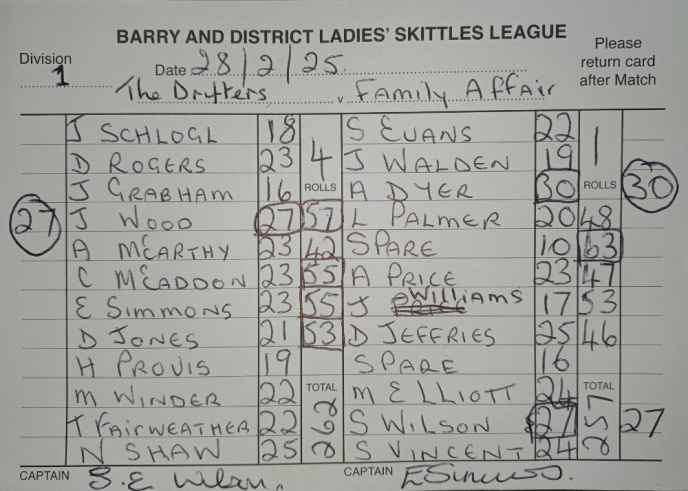 BARRY AND DISTRICT LADIES' SKITTLES LEAGUE
Division 1
Date 28/2/25
Please return card after Match
The Drifters v Family Affair
J SCHLOGL 18 S EVANS 22
D ROGERS 23 4 J WALDEN 19 1
J GRABHAM 16 ROLLS A DYER 30 ROLLS 30
27 J WOOD 27 57 L PALMER 20 48
A McCARTHY 23 42 SPARE 10 63
C McCADDON 23 55 A PRICE 23 47
E SIMMONS 23 55 J WILLIAMS 17 53
D JONES 21 53 D JEFFRIES 25 46
H PROVIS 19 SPARE 16
M WINDER 22 TOTAL M ELLIOTT 24 TOTAL
T FAIRWEATHER 22 262 S WILSON 27 257 27
N SHAW 25 S VINCENT 24
CAPTAIN CAPTAIN